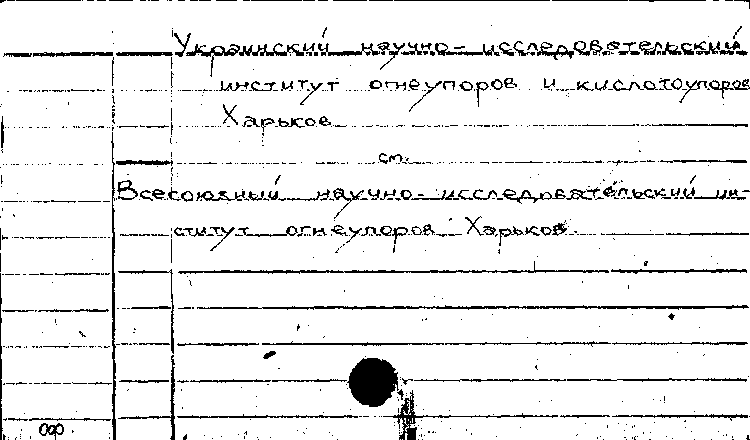 Украинский научно-исследовательский
институт огнеупоров и кислотоупоров
Харьков
см.
Всесоюзный научно-исследовательский ин-
ститут огнеупоров. Харьков.